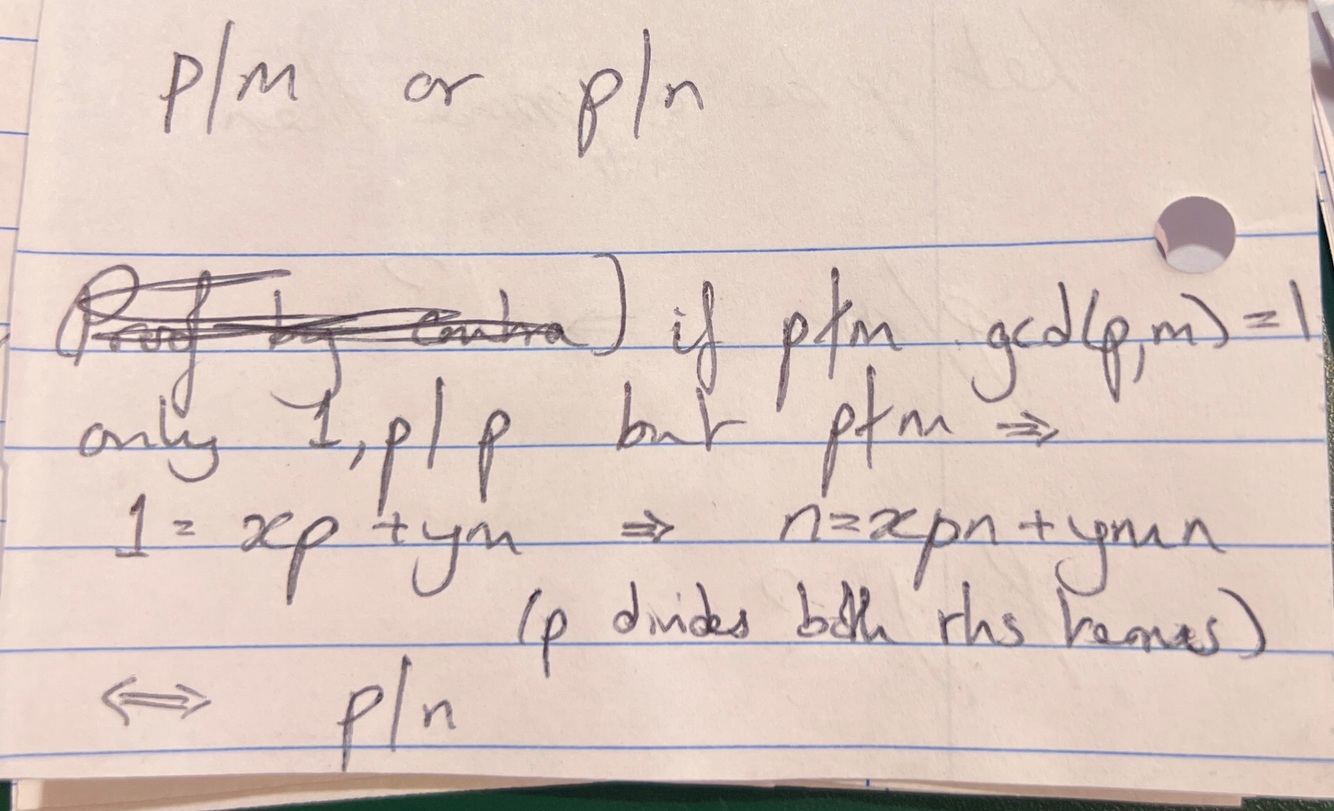 p|m or p|n
(Proof by contra) if p∤m gcd(p,m)=1
only 1,p|p but p∤m ⇒
1 = xp + ym ⇒ n=xpn + ymn
(p divides both rhs terms)
⇔ p|n